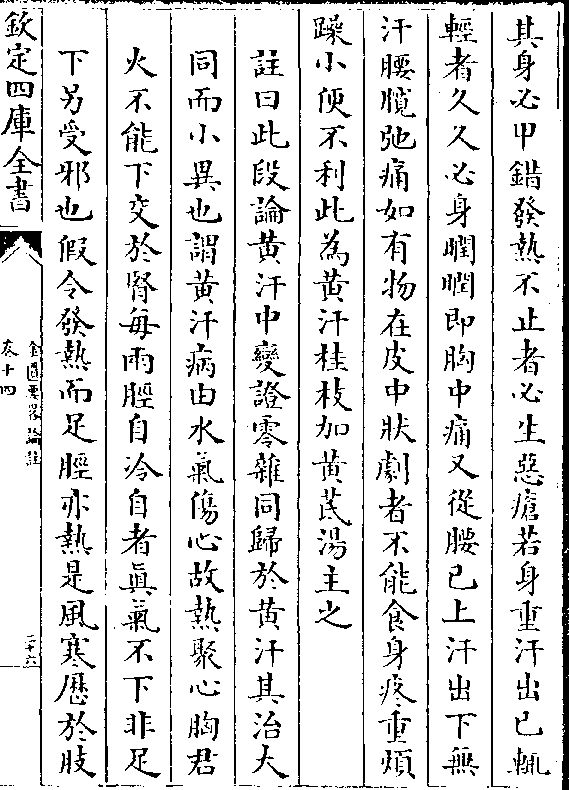 其身必甲錯發熱不止者必生惡瘡若身重汗出已輒
輕者久久必身瞤瞤即胸中痛又從腰已上汗出下無
汗腰髖弛痛如有物在皮中狀劇者不能食身疼重煩
躁小便不利此為黄汗桂枝加黄茋湯主之
註曰此段論黄汗中變證零雜同歸於黄汗其治大
同而小異也謂黄汗病由水氣傷心故熱聚心胸君
火不能下交於腎每兩脛自冷自者眞氣不下非足
下另受邪也假令發熱而足脛亦熱是風寒歴於肢
欽定四庫全書
金匱要畧論註
卷十四
二十六